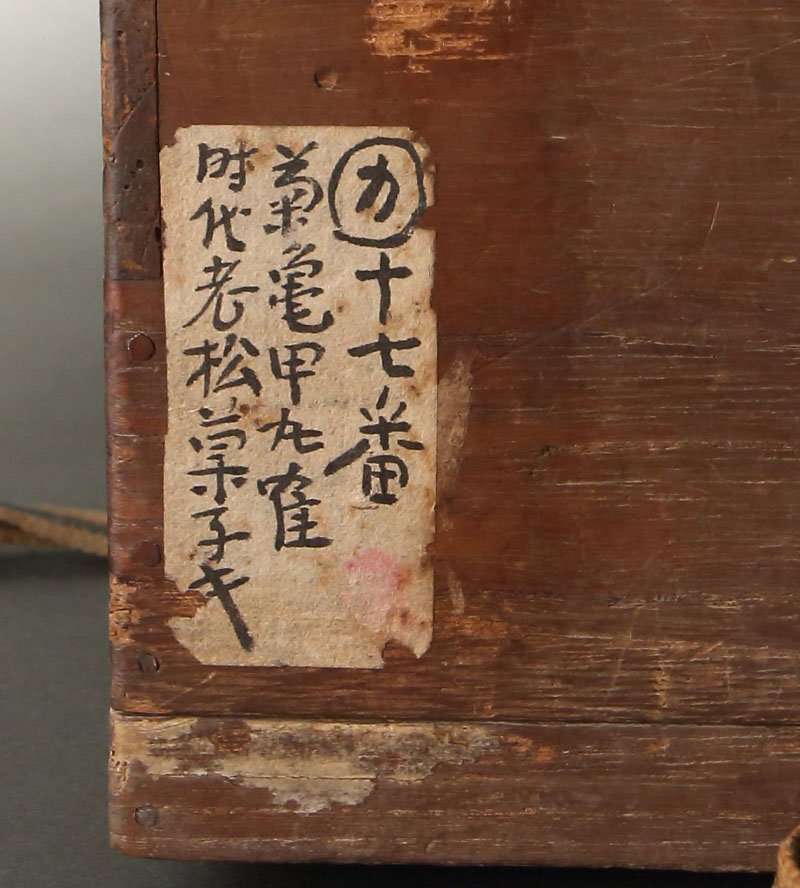 カ十七番
菊亀甲丸隺
时代老松菓子キ